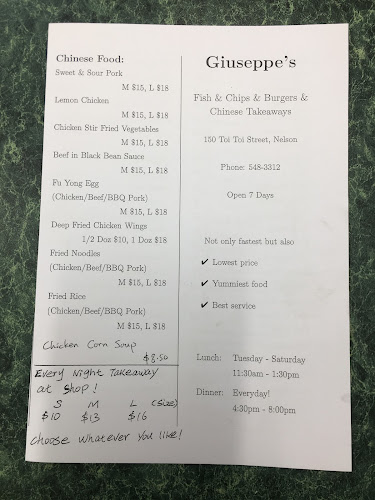 Chinese Food:
Sweet & Sour Pork
M $15, L $18
Lemon Chicken
M $15, L $18
Chicken Stir Fried Vegetables
M $15, L $18
Beef in Black Bean Sauce
M $15, L $18
Fu Yong Egg
(Chicken/Beef/BBQ Pork)
M $15, L $18
Deep Fried Chicken Wings
1/2 Doz $10, 1 Doz $18
Fried Noodles
(Chicken/Beef/BBQ Pork)
M $15, L $18
Fried Rice
(Chicken/Beef/BBQ Pork)
M $15, L $18
Chicken Corn Soup
$8.50
Every Night Takeaway
at Shop!
S M L (Size)
$10 $13 $16
Choose Whatever You like!
Giuseppe's
Fish & Chips & Burgers &
Chinese Takeaways
150 Toi Toi Street, Nelson
Phone: 548-3312
Open 7 Days
Not only fastest but also
✔ Lowest price
✔ Yummiest food
✔ Best service
Lunch: Tuesday - Saturday
11:30am - 1:30pm
Dinner: Everyday!
4:30pm - 8:00pm